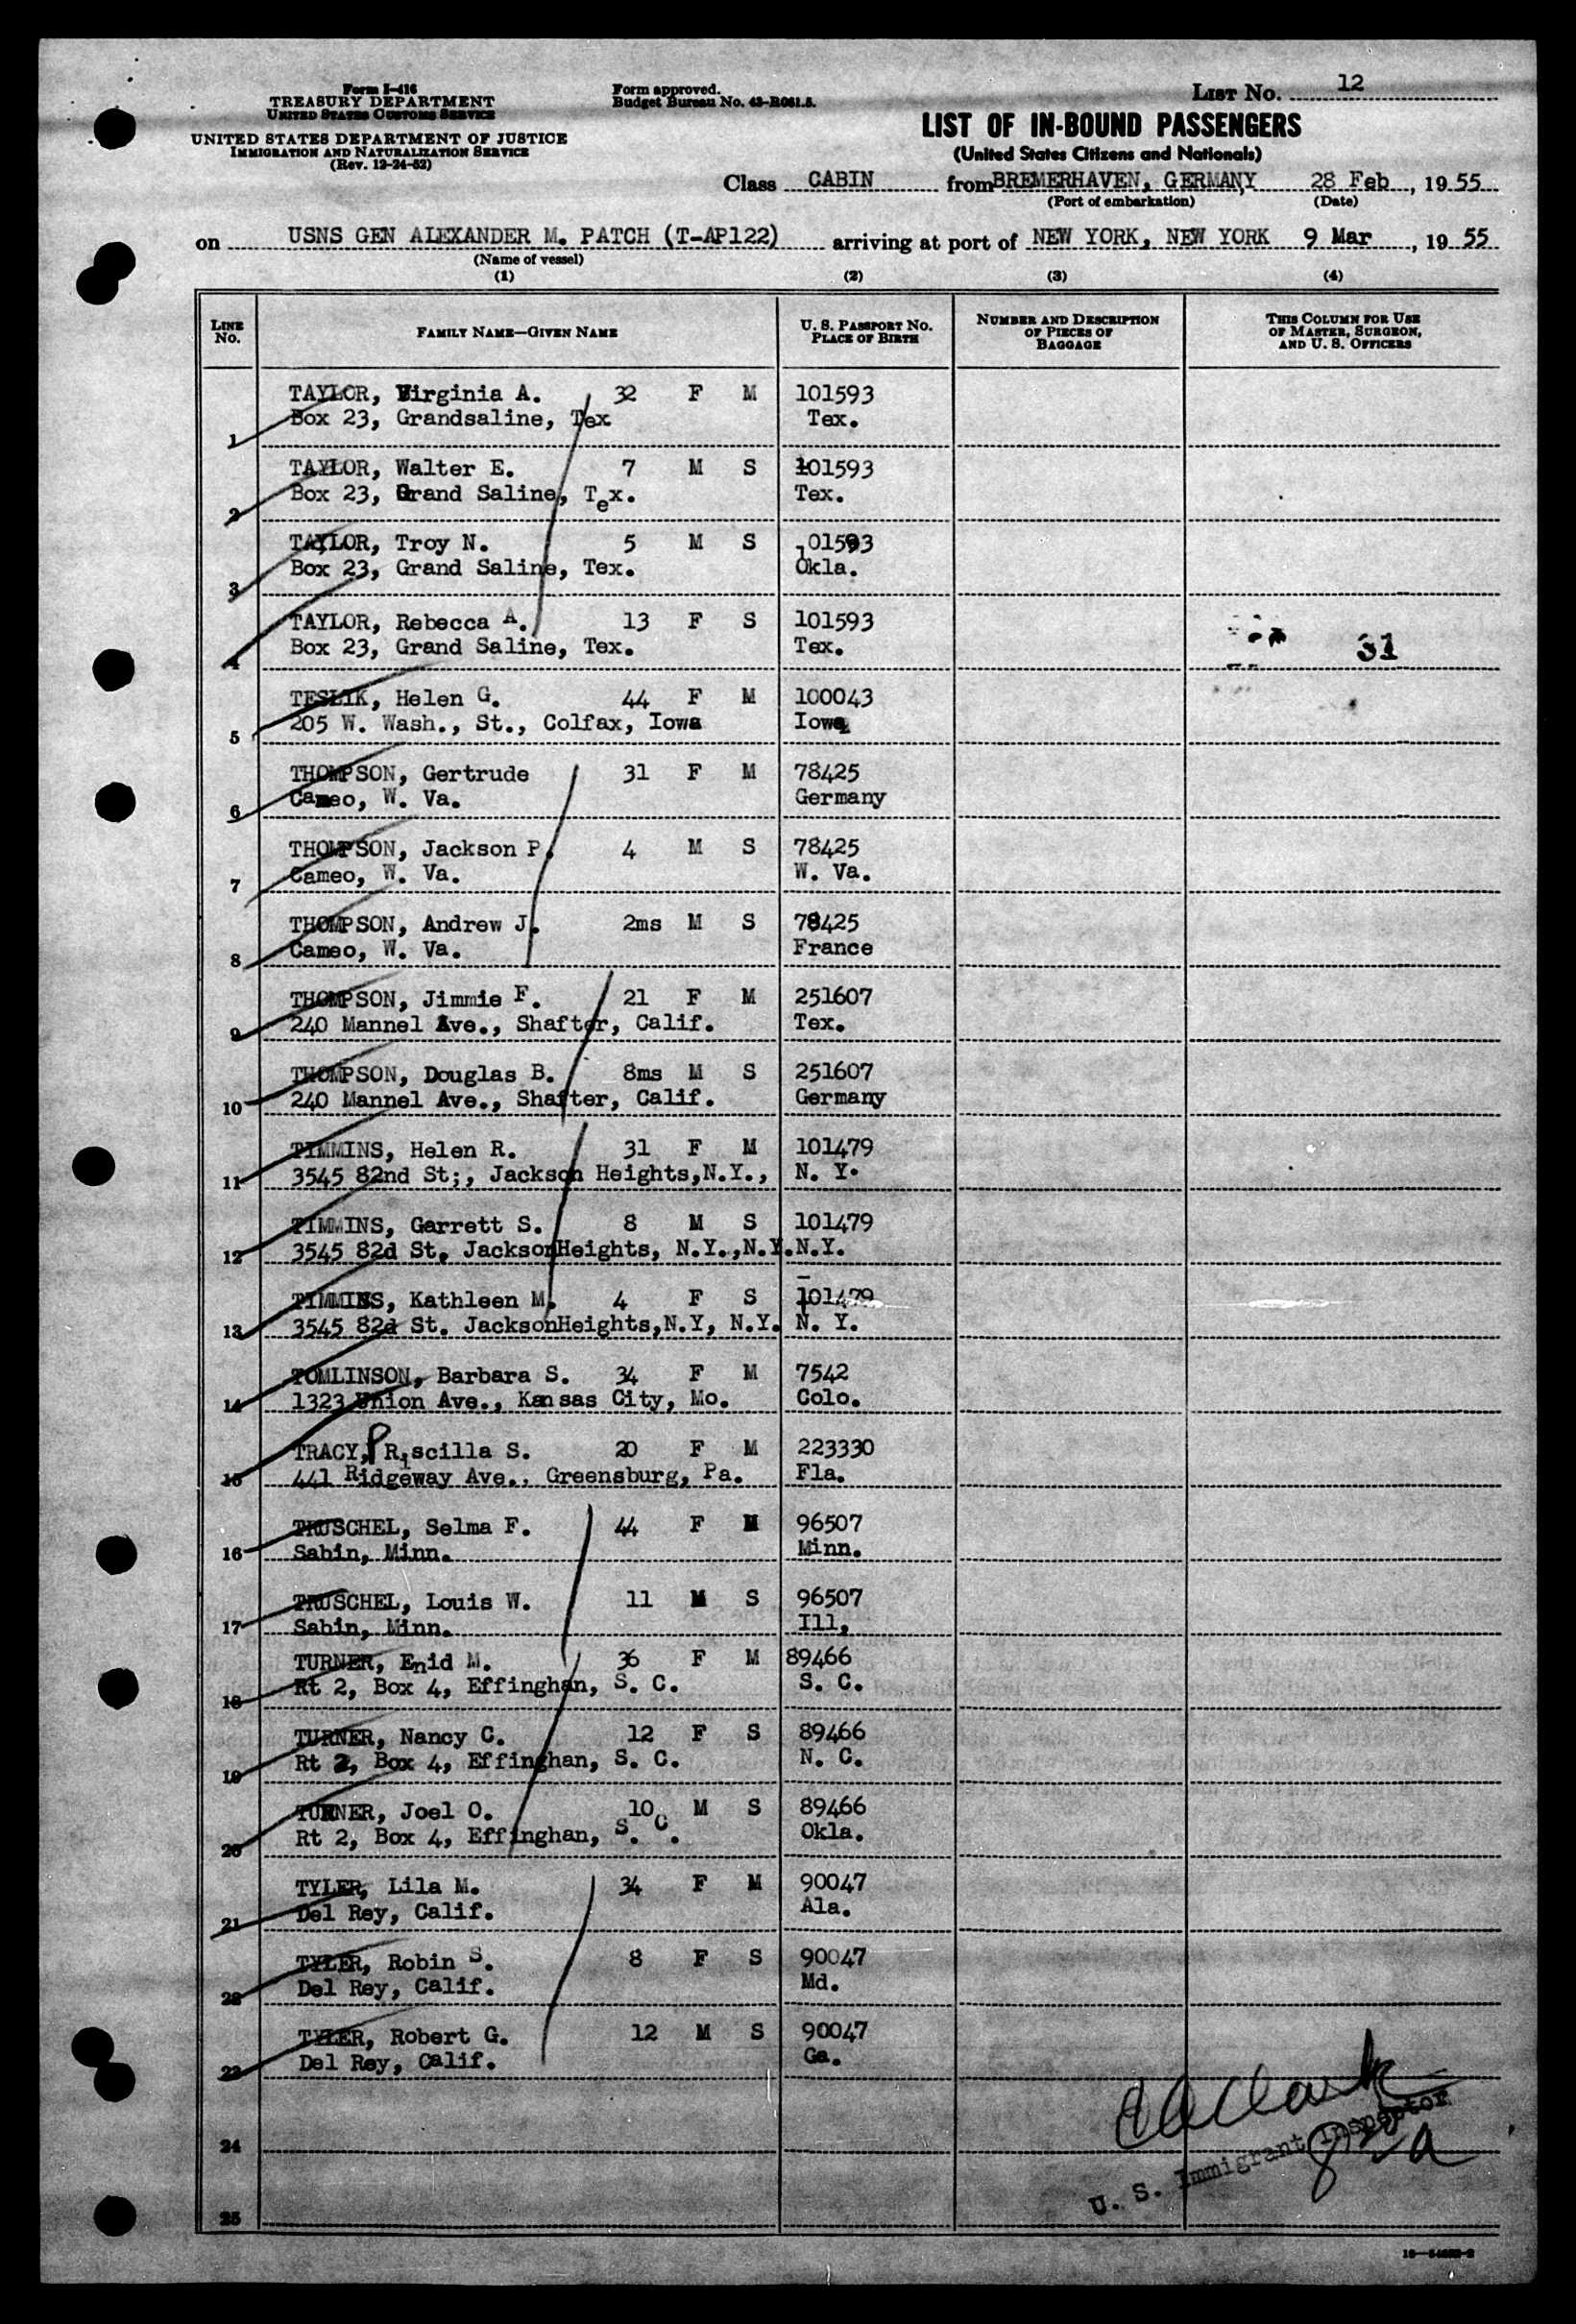 Form I-416
TREASURY DEPARTMENT
UNITED STATES CUSTOMS SERVICE
UNITED STATES DEPARTMENT OF JUSTICE
IMMIGRATION AND NATURALIZATION SERVICE
(Rev. 12-24-52)
Form approved.
Budget Bureau No. 43-R061.5.
LIST No. 12
LIST OF IN-BOUND PASSENGERS
(United States Citizens and Nationals)
Class CABIN from BREMERHAVEN, GERMANY, 28 Feb, 1955
(Port of embarkation) (Date)
on USNS GEN ALEXANDER M. PATCH (T-AP122) arriving at port of NEW YORK, NEW YORK 9 Mar, 1955
(Name of vessel)
(1) (2) (3) (4)
LINE No. FAMILY NAME—GIVEN NAME U. S. PASSPORT No. PLACE OF BIRTH NUMBER AND DESCRIPTION OF PIECES OF BAGGAGE THIS COLUMN FOR USE OF MASTER, SURGEON, AND U. S. OFFICERS
TAYLOR, Virginia A. 32 F M 101593
1 Box 23, Grandsaline, Tex Tex.
TAYLOR, Walter E. 7 M S 101593
2 Box 23, Grand Saline, Tex. Tex.
TAYLOR, Troy N. 5 M S 101593
3 Box 23, Grand Saline, Tex. Okla.
TAYLOR, Rebecca A. 13 F S 101593
4 Box 23, Grand Saline, Tex. Tex. 31
TESLIK, Helen G. 44 F M 100043
5 205 W. Wash., St., Colfax, Iowa Iowa
THOMPSON, Gertrude 31 F M 78425
6 Cameo, W. Va. Germany
THOMPSON, Jackson P. 4 M S 78425
7 Cameo, W. Va. W. Va.
THOMPSON, Andrew J. 2ms M S 78425
8 Cameo, W. Va. France
THOMPSON, Jimmie F. 21 F M 251607
9 240 Mannel Ave., Shafter, Calif. Tex.
THOMPSON, Douglas B. 8ms M S 251607
10 240 Mannel Ave., Shafter, Calif. Germany
TIMMINS, Helen R. 31 F M 101479
11 3545 82nd St;, Jackson Heights,N.Y., N. Y.
TIMMINS, Garrett S. 8 M S 101479
12 3545 82d St, JacksonHeights, N.Y.,N.Y. N.Y.
TIMMINS, Kathleen M. 4 F S 101479
13 3545 82d St. JacksonHeights,N.Y, N.Y. N. Y.
TOMLINSON, Barbara S. 34 F M 7542
14 1323 Union Ave., Kansas City, Mo. Colo.
TRACY, PRiscilla S. 20 F M 223330
15 441 Ridgeway Ave., Greensburg, Pa. Fla.
TRUSCHEL, Selma F. 44 F M 96507
16 Sabin, Minn. Minn.
TRUSCHEL, Louis W. 11 M S 96507
17 Sabin, Minn. Ill,
TURNER, Enid M. 36 F M 89466
18 Rt 2, Box 4, Effinghan, S. C. S. C.
TURNER, Nancy C. 12 F S 89466
19 Rt 2, Box 4, Effinghan, S. C. N. C.
TURNER, Joel O. 10 M S 89466
20 Rt 2, Box 4, Effinghan, S. C. Okla.
TYLER, Lila M. 34 F M 90047
21 Del Rey, Calif. Ala.
TYLER, Robin S. 8 F S 90047
22 Del Rey, Calif. Md.
TYLER, Robert G. 12 M S 90047
23 Del Rey, Calif. Ga.
24
U. S. Immigrant Inspector
25